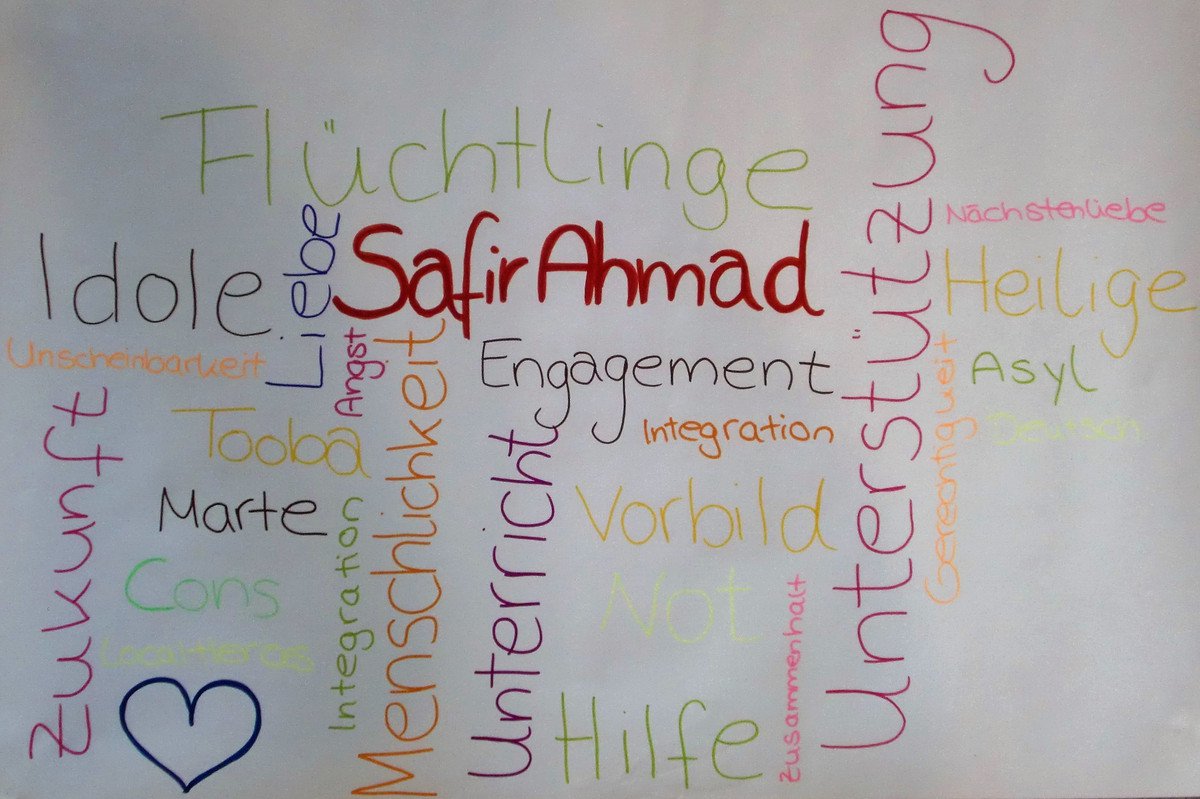 Flüchtlinge
Unterstützung
Nächstenliebe
Idole
Liebe
Safir Ahmad
Heilige
Unscheinbarkeit
Angst
Menschlichkeit
Engagement
Gerechtigkeit
Asyl
Zukunft
Tooba
Integration
Deutsch
Marte
Integration
Unterricht
Vorbild
Cons
Not
Zusammenhalt
Local Heroes
Hilfe